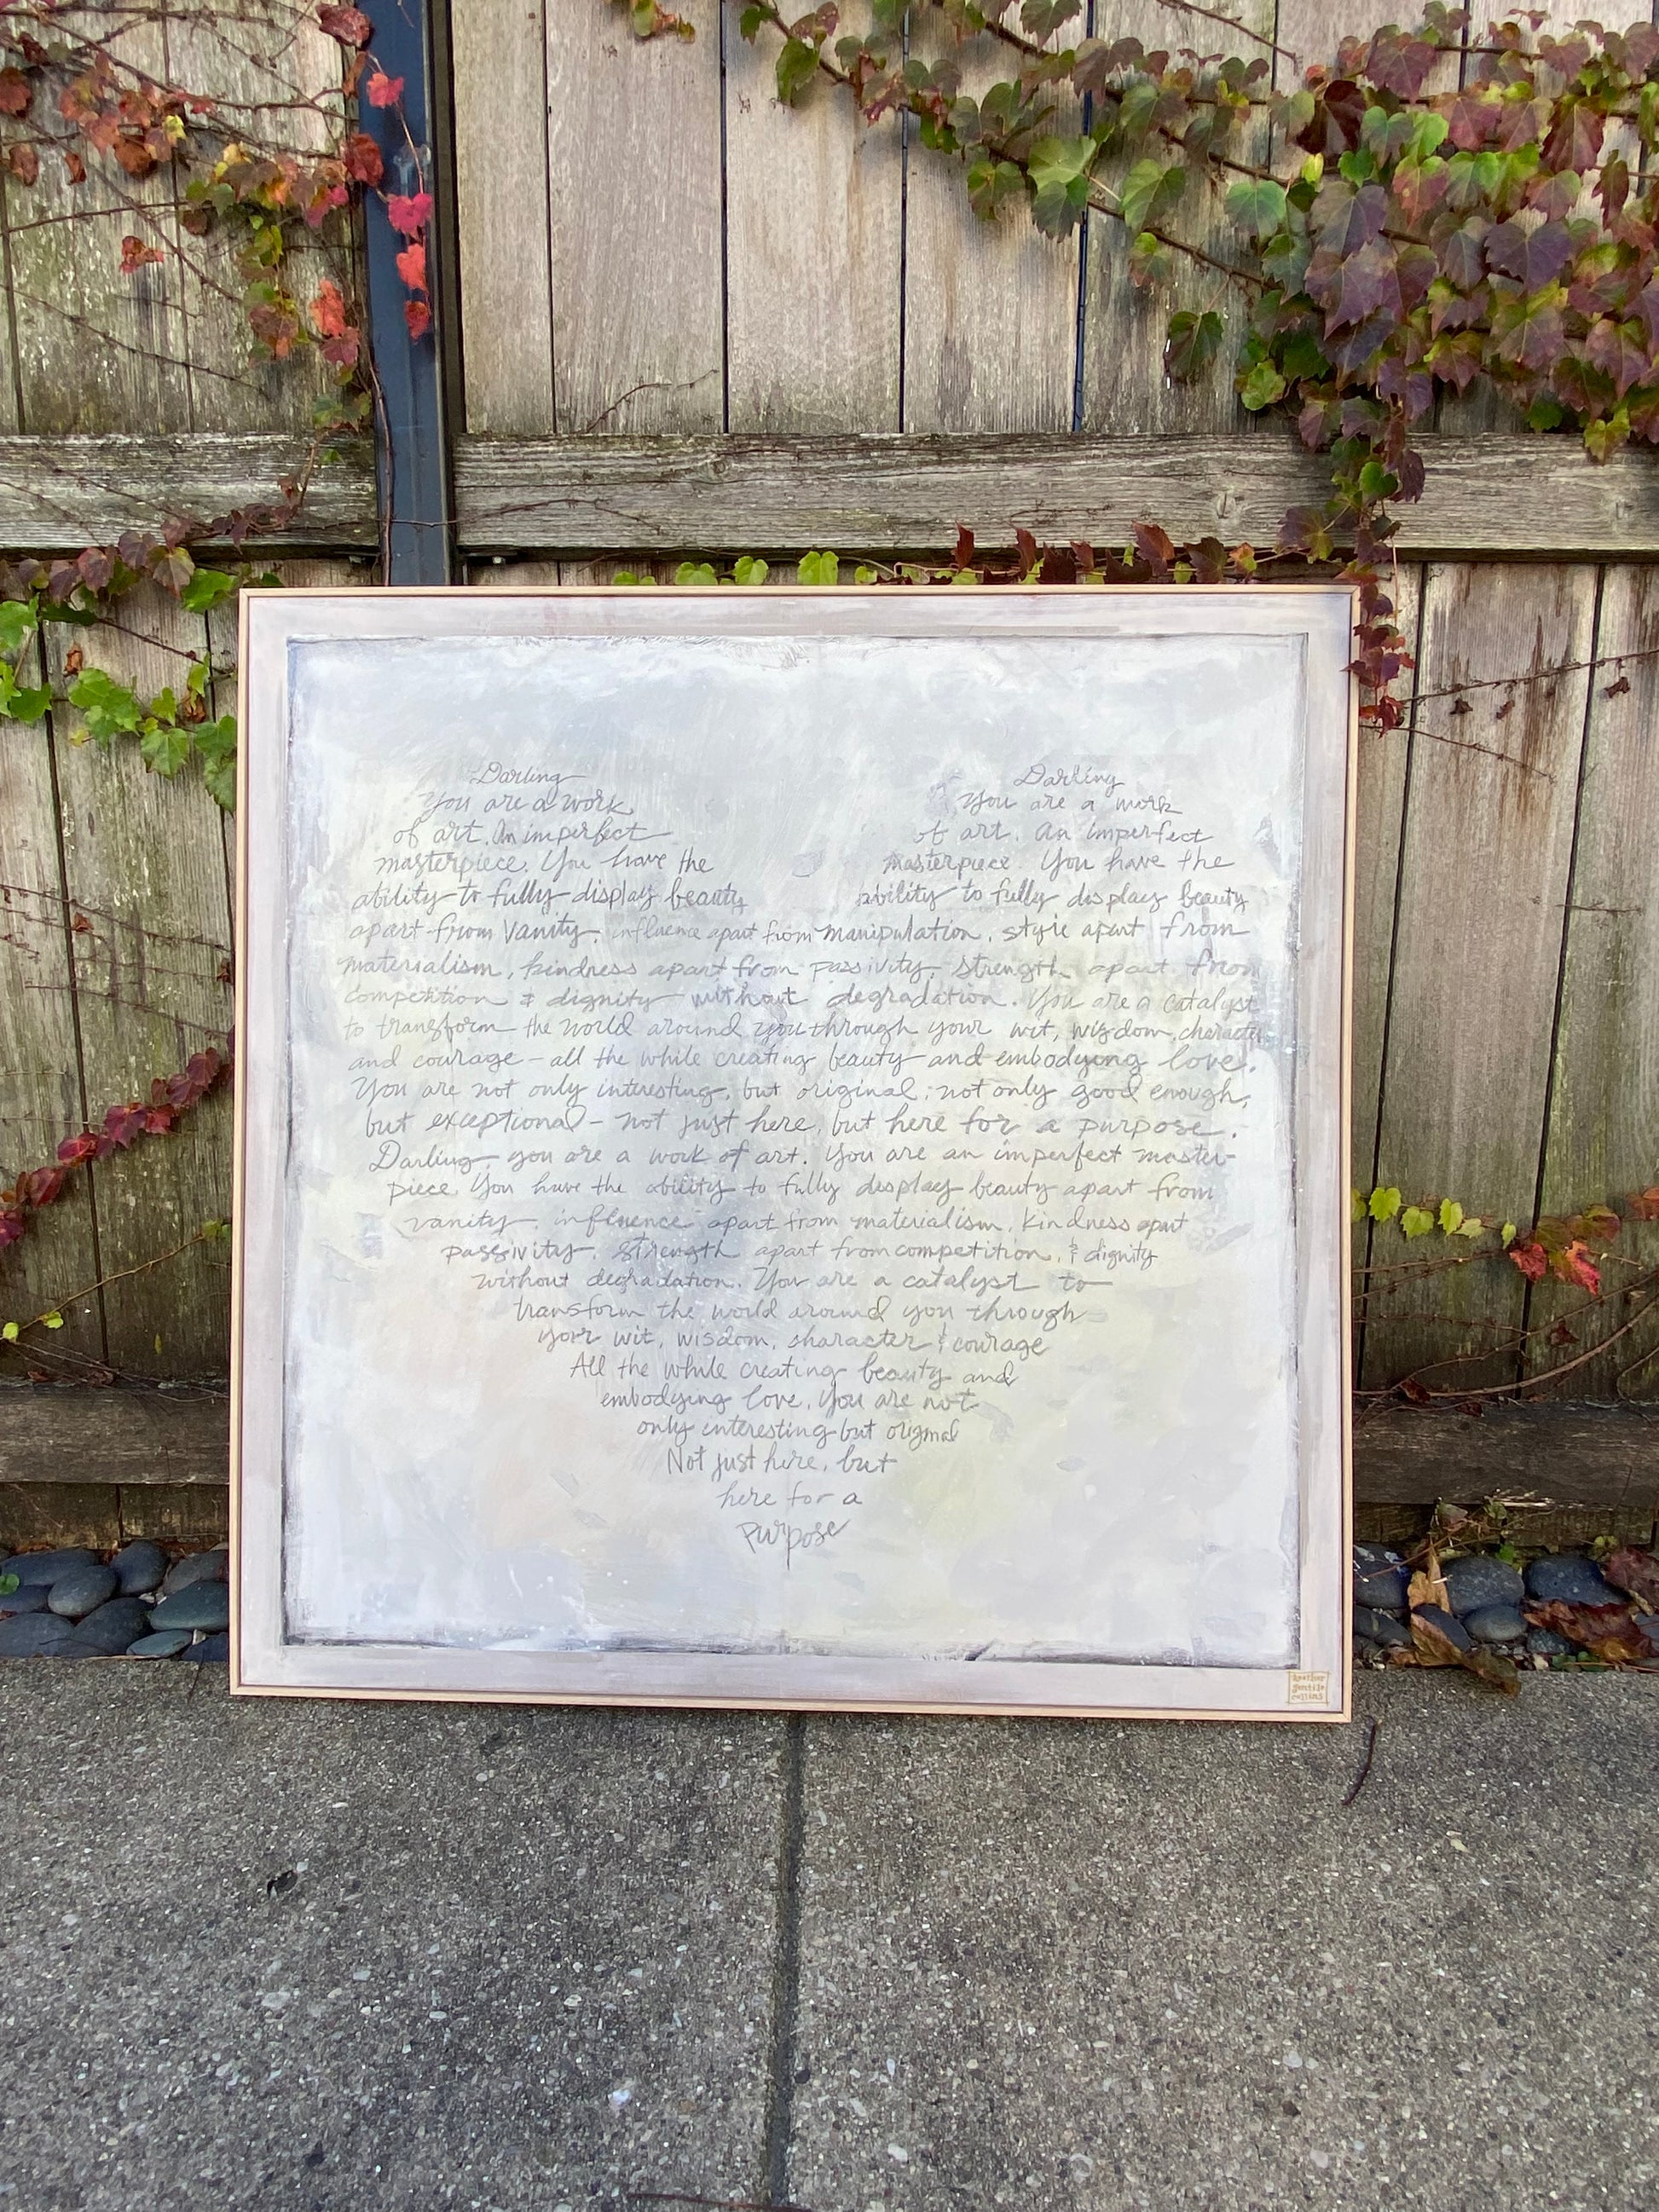 Darling
You are a work
of art. An imperfect
masterpiece. You have the
ability to fully display beauty
Darling
You are a work
of art. An imperfect
masterpiece. You have the
ability to fully display beauty
apart from vanity, influence apart from manipulation, style apart from
materialism, kindness apart from passivity, strength apart from
competition & dignity without degradation. You are a catalyst
to transform the world around you through your wit, wisdom, character
and courage - all the while creating beauty and embodying love.
You are not only interesting, but original; not only good enough,
but exceptional - not just here, but here for a purpose.
Darling, you are a work of art. You are an imperfect master-
piece. You have the ability to fully display beauty apart from
vanity, influence apart from materialism, kindness apart
passivity, strength apart from competition, & dignity
without degradation. You are a catalyst to
transform the world around you through
your wit, wisdom, character & courage
All the while creating beauty and
embodying love. You are not
only interesting but original
Not just here, but
here for a
purpose
heather
gentile
collins